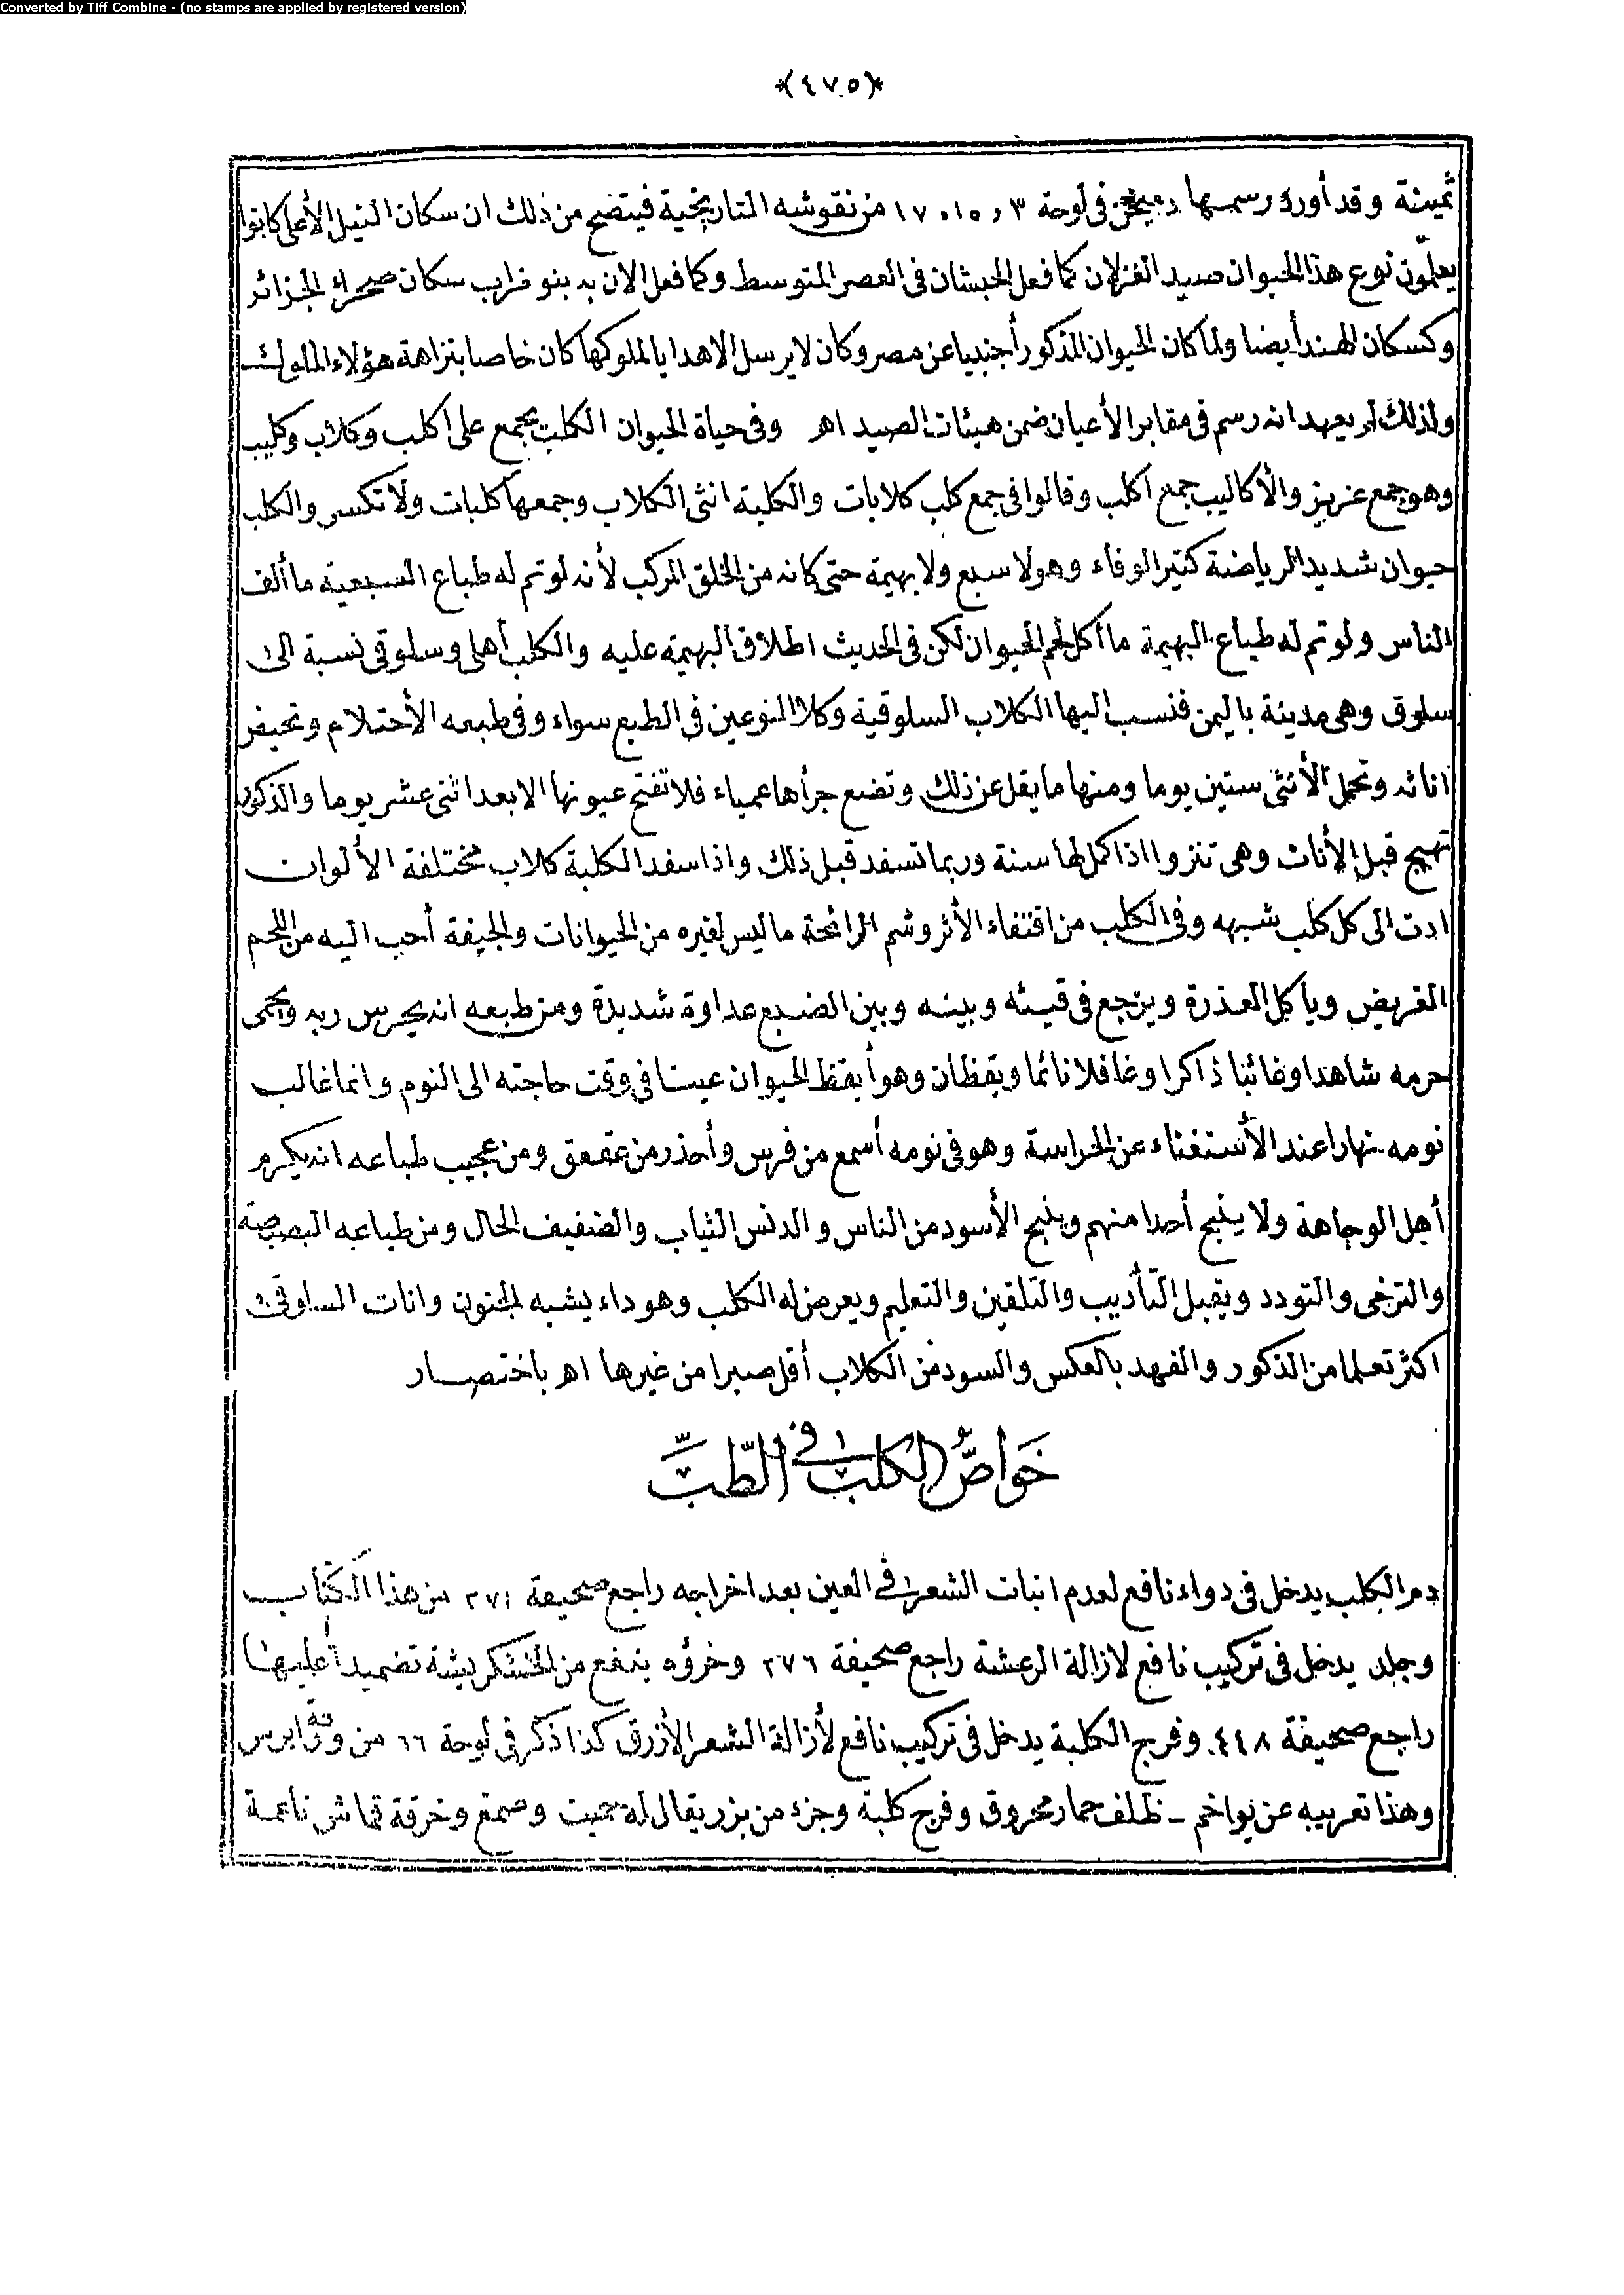 Converted by Tiff Combine - (no stamps are applied by registered version)
*(٤٧٥)*
ثمينة وقد أورد رسمها دميخن فى لوحة ٣ و ١٥ و ١٧ من نقوشه التاريخية فيتضح من ذلك ان سكان النيل الأعلى كانوا
يعلمّون نوع هذا الحيوان صيد الغزلان كما فعل الحبشان فى العصر المتوسط وكما فعل الان به بنو مزاب سكان صحراء الجزائر
وكسكان الهند أيضا ولما كان الحيوان المذكور أجنبيا عن مصر وكان لا يرسل الا هدايا لملوكها كان خاصا بنزاهة هؤلاء الملوك
ولذلك لم يعهد انه رسم فى مقابر الأعيان ضمن هيئات الصيد اهـ وفى حياة الحيوان الكلب يجمع على أكلب وكلاب وكليب
وهو جمع عزيز والأكاليب جمع اكلب وقالوا فى جمع كلب كلابات والكلبة انثى الكلاب وجمعها كلبات ولا تكسر والكلب
حيوان شديد الرياضة كثير الوفاء وهو لا سبع ولا بهيمة حتى كانه من الخلق المركب لأنه لو تم له طباع السبعية ما ألف
الناس ولو تم له طباع البهيمة ما أكل لحم الحيوان لكن فى الحديث اطلاق البهيمة عليه والكلب أهلى وسلوقى نسبة الى
سلوق وهى مدينة باليمن فنسب اليها الكلاب السلوقية وكلا النوعين فى الطبع سواء وفى طبعه الأحتلام وتحيض
اناثه وتحمل الأنثى ستين يوما ومنها ما يقل عن ذلك وتضع جرأها عمياء فلا تفتح عيونها الا بعد اثنى عشر يوما والذكور
تهيج قبل الأناث وهى تنزوا اذا كمل لها سنة وربما تسفد قبل ذلك واذا سفد الكلبة كلاب مختلفة الألوان
ادت الى كل كلب شبهه وفى الكلب من اقتفاء الأثر وشم الرائحة ما ليس لغيره من الحيوانات والجيفة أحب اليه من اللحم
الغريض ويأكل العذرة ويرجع فى قيئه وبينه وبين الضبع عداوة شديدة ومن طبعه انه يحرس ربه ويحمى
حرمه شاهدا وغائبا ذاكرا وغافلا نائما ويقظان وهو أيقظ الحيوان عينا فى وقت حاجته الى النوم وانما غالب
نومه نهارا عند الأستغناء عن الحراسة وهو فى نومه أسمع من فرس وأحذر من عقعق ومن عجيب طباعه انه يكرم
أهل الوجاهة ولا ينبح أحدا منهم وينبح الأسود من الناس والدنس الثياب والضعيف الحال ومن طباعه البصبصة
والترضى والتودد ويقبل التأديب والتلقين والتعليم ويعرض له الكلب وهو داء يشبه الجنون وانات السلوقى
اكثر تعلما من الذكور والفهد بالعكس والسود من الكلاب أقل صبرا من غيرها اهـ باختصار
خَواصُّ الكلب فى الطّبِّ
دم الكلب يدخل فى دواء نافع لعدم انبات الشعر فى العين بعد اخراجه راجع صحيفة ٢٧١ من هذا الكتاب
وجلده يدخل فى تركيب نافع لازالة الرعشة راجع صحيفة ٢٧٦ وخرؤه ينفع من الخشكريشة تضميدا عليها
راجع صحيفة ٤٤٨. وفرج الكلبة يدخل فى تركيب نافع لأزالة الشعر الأزرق كذا ذكر فى لوحة ٦٦ من ورقة ابرس
وهذا تعريبه عن يواخم ـ ظلف حمار محروق وفرج كلبة وجزء من بزر يقال له حبت وصمغ وخرقة قماش ناعمة